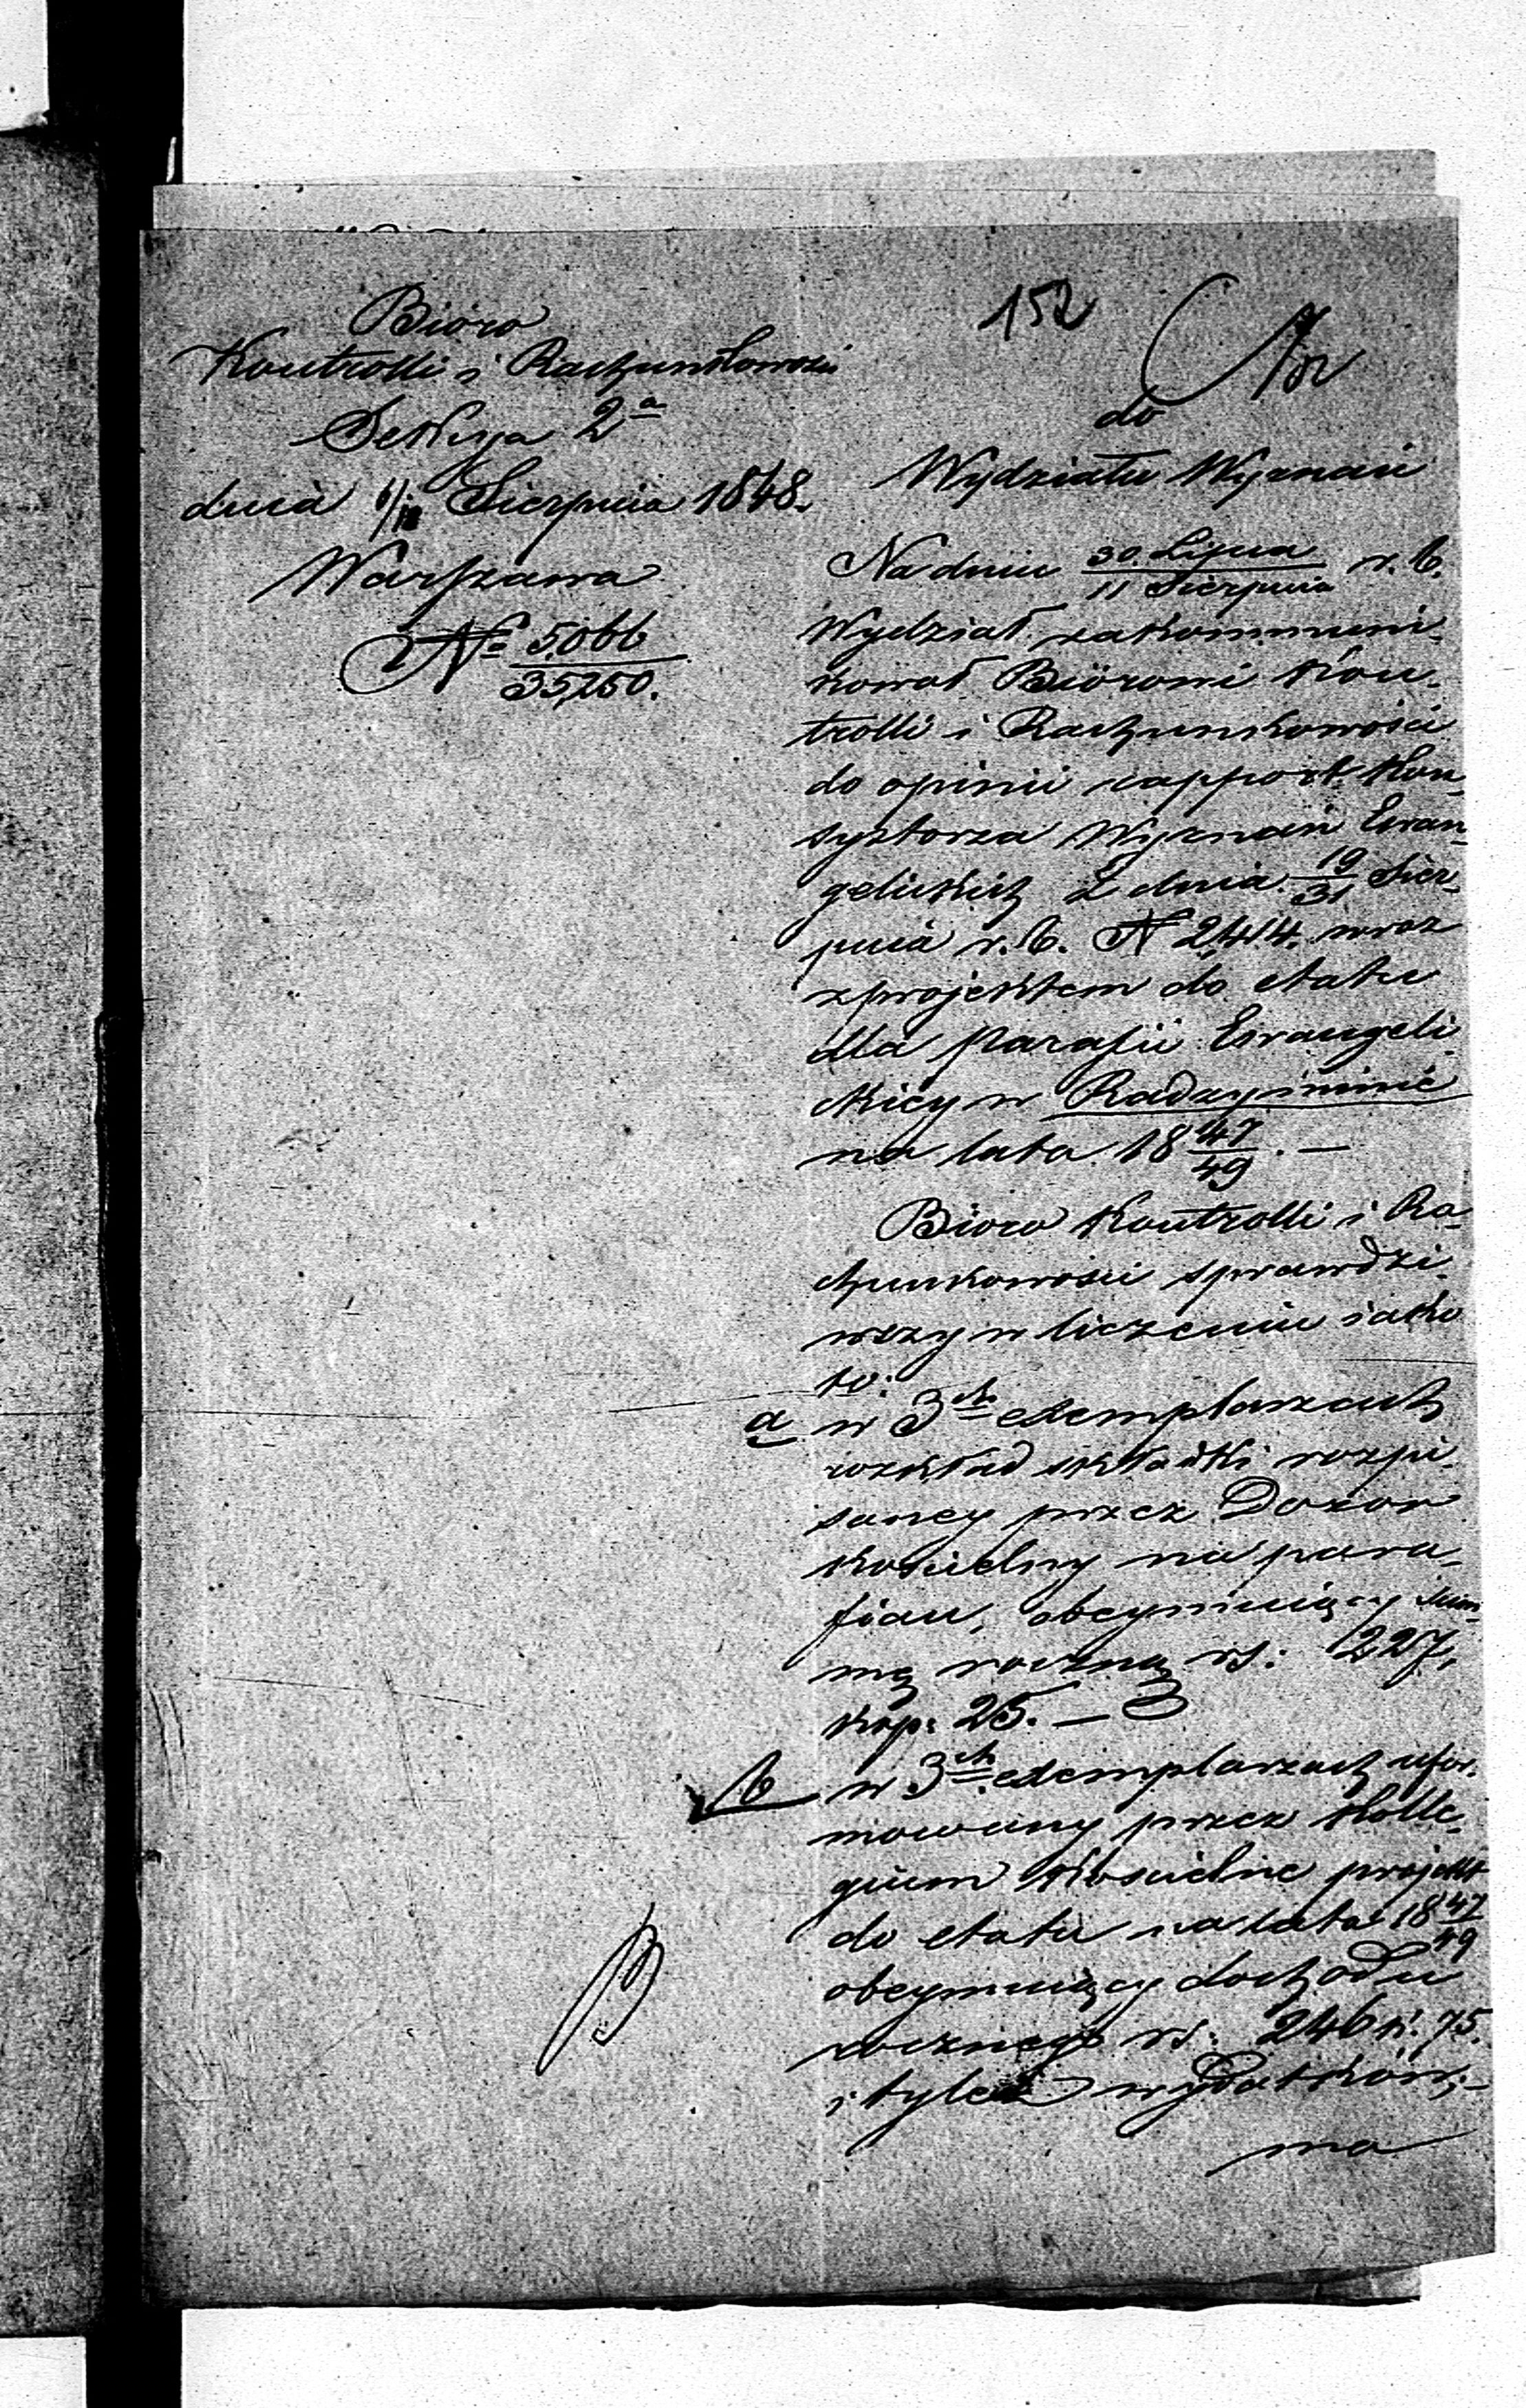 Bióro
Kontrolli i Rachunkowości
Sekcya 2ᵃ
dnia 6/18 Sierpnia 1848.
Warszawa
Nº 5066/35,250.
152
do
Wydziału Wyznań
Na dniu 30 Lipca/11 Sierpnia r. b.
Wydział zakommuni-
kował Biórowi Kon-
trolli i Rachunkowości
do opinii rapport Kon-
systorza Wyznań Ewan-
gelickich z dnia 19/31 Sier-
pnia r. b. N 2,414. wraz
z projektem do etatu
dla Parafii Ewangeli-
ckiéy w Radzyminie
na lata 18 47/49. —
Bióro Kontrolli i Ra-
chunkowości sprawdzi-
wszy w liczeniu iako
to:
a w 3ch exemplarzach
rozkład składki rozpi-
saney przez Dozór
Kościelny na para-
fian, obeymuiący sum-
mę roczną rs: 227,
kop: 25. —
b w 3ch exemplarzach ufor-
mowany przez Kolle-
gium Kościelne projekt
do etatu na lata 18 47/49
obeymuiący dochodu
rocznego rs: 246 k. 75.
i tyleż wydatków; —
ma